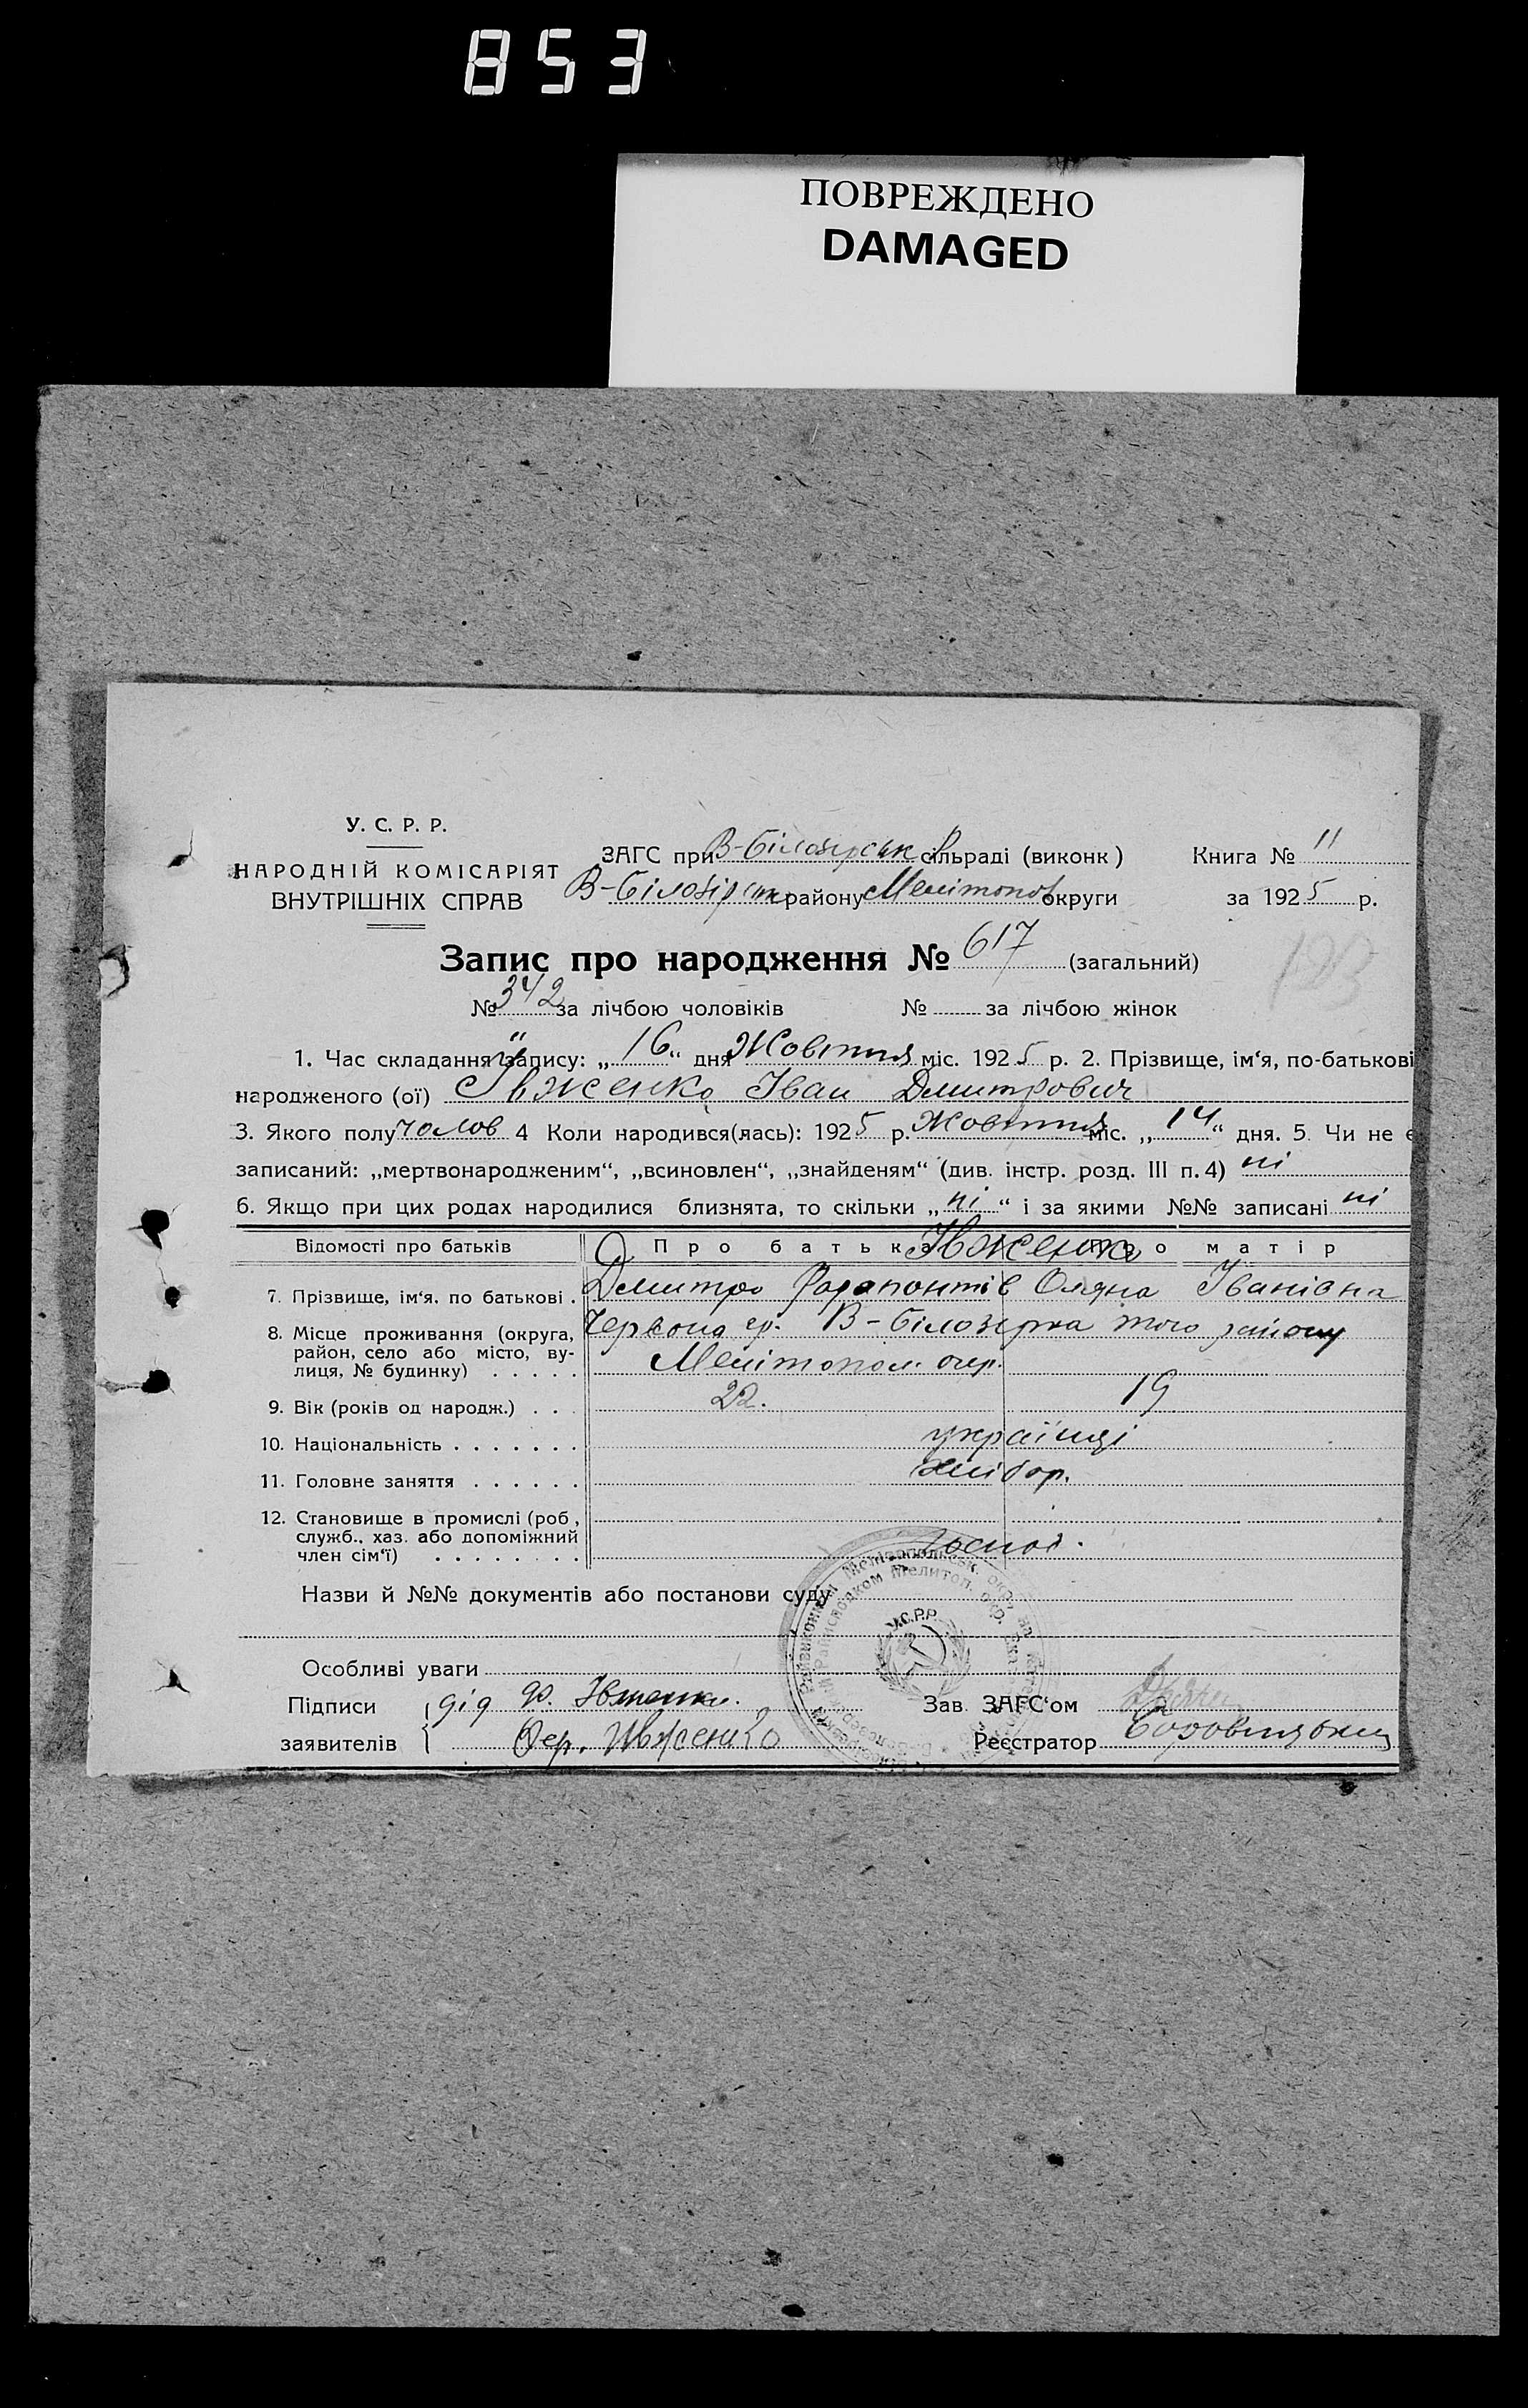 853
ПОВРЕЖДЕНО
DAMAGED
У. С. Р. Р.
НАРОДНІЙ КОМІСАРІЯТ
ВНУТРІШНІХ СПРАВ
ЗАГС при В-Білозірськ сільраді (виконк)
Книга № 11
В-Білозірськ району Мелітопол округи
за 1925 р.
Запис про народження № 617 (загальний)
№ 342 за лічбою чоловіків № за лічбою жінок
1. Час складання запису: „16“ дня Жовтня міс. 1925 р. 2. Прізвище, ім‘я, по-батькові
народженого (ої) Івженко Іван Дмитрович
3. Якого полу чолов 4 Коли народився(лась): 1925 р. Жовтня міс. „14“ дня. 5. Чи не є
записаний: „мертвонародженим“, „всиновлен“, „знайденям“ (див. інстр. розд. III п. 4) ні
6. Якщо при цих родах народилися близнята, то скільки „ні“ і за якими №№ записані ні
Відомості про батьків Про батька Про матір
Івженко
7. Прізвище, ім‘я, по батькові . Дмитро Фарапонтів Оляна Іванівна
8. Місце проживання (округа, район, село або місто, вулиця, № будинку) . . . . .
Червона В-Білозірка того району
Мелітопол. окр.
9. Вік (років од народж.) . . . 22. 19
10. Національність . . . . . . . українці
11. Головне заняття . . . . . . хлібор.
12. Становище в промислі (роб., служб., хаз. або допоміжний член сім‘ї) . . . . . . . .
господ.
Назви й №№ документів або постанови суду
У.С.Р.Р.
Особливі уваги
Підписи дід Ф. Івженко. Зав. ЗАГС‘ом
заявителів Фер. Ивженко Реєстратор